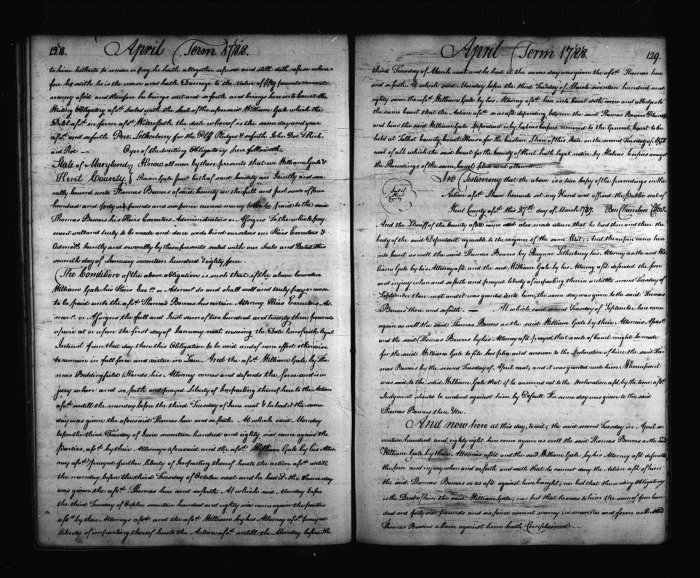 128.
April Term 1788.
to him hitherto to render or pay he hath altogether refused and still doth refuse where-
fore he saith he is the worse and hath Damage to the Value of fifty pounds current
money afst. and therefore he brings suit and so forth and brings here into Court the
Writing Obligatory afst. Sealed with the Seal of the aforesaid William Gale which the
Debt afst. in form afst. Witnesseth the date whereof is the same day and year
afst. and so forth
Copy of the Writing Obligatory here followeth
State of Maryland, Know all men by these presents that we William Gale &
Kent County
Gale both of said County are Jointly and seve-
rally bound unto Thomas Bowers of said County in the full and just sum of two
hundred and forty six pounds and six pence current money to be paid to the said
Thomas Bowers his Heirs Executors Administrators or Assigns To the which pay-
ment well and truly to be made and done we do bind ourselves our Heirs Executors &
Adminrs. Jointly and severally by these presents sealed with our Seals and Dated this
day of January seventeen hundred & eighty four
The Condition of the above obligation is such that if the above bounden
William Gale his Heirs Exrs. or Adminrs. do and shall well and truly pay or cause
to be paid unto the afst. Thomas Bowers his certain Attorney Heirs Executors Ad-
minrs. or Assigns the full and Just sum of two hundred and twenty three pounds
at or before the first day of January next ensuing the Date hereof with legal
Interest from that day then this Obligation to be void and of non effect otherwise
to remain in full force and virtue in Law. And the afst. William Gale by Tho-
mas Beddingfield Hands his Attorney comes and defends the force and in-
jury when and so forth and prayed Liberty of Imparling thereof here to the Action
afst. until the monday before the third Tuesday of June next & he had it the same
day was given the aforesaid Thomas here and so forth. At which said Monday
before the third Tuesday of June seventeen hundred and eighty six came again the
parties afst. by their Attorneys aforesaid and the afst. William Gale by his Attor-
ney afst. prayed further Liberty of Imparling thereof here to the action afst. until
the monday before the third Tuesday of October next and he had it the same day
was given the afst. Thomas here and so forth. At which said Monday before
the third Tuesday of October seventeen hundred and eighty six came again the parties
afst. by their Attorneys afst. and the afst. William by his Attorney afst. prayed
Liberty of imparling thereof here to the Action afst. until the Monday before the
April Term 1788.
129.
third Tuesday of March next and he had it the same day was given the afst. Thomas here
and so forth. At which said Monday before the third Tuesday of March seventeen hundred and
eighty seven the afst. William Gale by his Attorney afst. here into Court doth come and alledge to
the same Court that the Action afst. so as afst. depending between the said Thomas Bowers Plaintiff
and him the said William Gale Defendant may be from hence removed to the General Court to be
held at Talbot County Court House for the Eastern Shore of this State on the second Tuesday of April
next of all which the said Court for the benefit of Kent hath legal notice by
the Proceedings of the same
In Testimony that the above is a true copy of the proceedings in the
Action afst. I have hereunto set my Hand and affixed the public seal of
Kent County afst. this 27th. day of March 1787. Ben Chambers Clk
And the Sheriff of the County afst. now said also made return that he had then and there the
body of the said Defendant agreeable to the exigence of the same Writ, And thereupon came here
into Court as well the said Thomas Bowers by his Attorney as the said Wil-
liam Gale by his Attorney afst. and the said William Gale by his Attorney afst. defends the force
and injury when and so forth and prayed liberty of Imparling thereunto until the second Tuesday of
September then next and it was granted unto him, the same day was given to the said Thomas
Bowers there and so forth. At which said second Tuesday of September here came
again as well the said Thomas Bowers as the said William Gale by their Attornies aforesaid
and the said Thomas Bowers by his Attorney afst. prayed that a rule of Court might be made
for the said William Gale to file his plea and answer to the Declaration of him the said Tho-
mas Bowers by the second Tuesday of April next, and it was granted unto him Whereupon it
was said to the said William Gale that if he answered not to the Declaration afst. by the time afst.
Judgment should be rendered against him by Default. The same day was given to the said
Thomas Bowers there &ca.
And now here at this day, to wit, the said second Tuesday in April se-
venteen hundred and eighty eight here come again as well the said Thomas Bowers as the said
William Gale by their Attornies afst. and the said William Gale by his Attorney afst. defends
the force and injury when and so forth and saith that he cannot deny the Action afst. of him
the said Thomas Bowers so as afst. against him brought, nor but that the writing Obligatory
is the Deed of him the said William Gale, nor but that he owes to him the sum of two hun-
dred and forty six pounds and six pence current money in manner and form as the said
Thomas Bowers above against him hath Complained